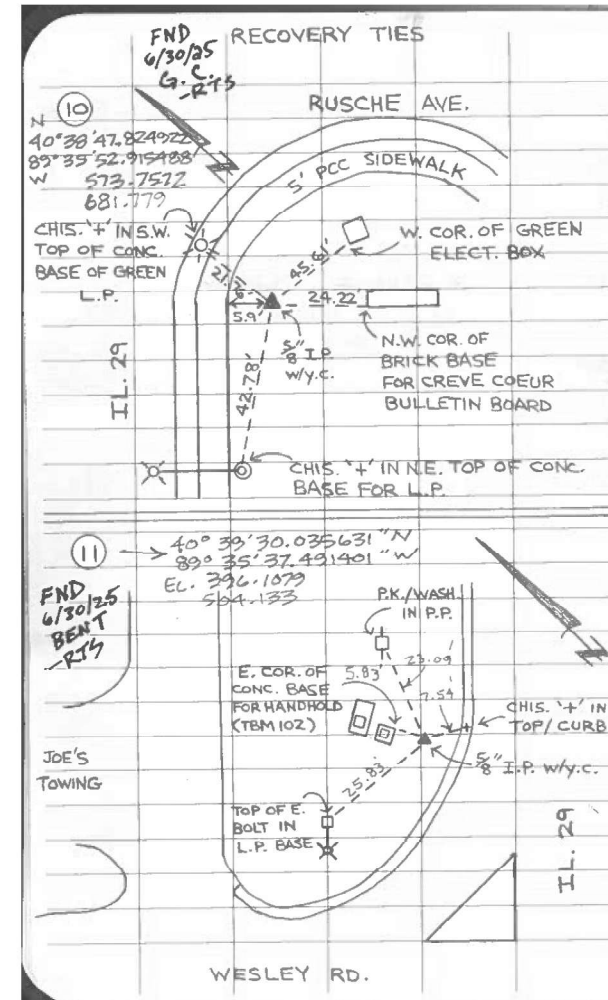 RECOVERY TIES
FND
6/30/25
G.C.
-RTS
10
RUSCHE AVE.
N
40°38'47.824922
89°35'52.915488
W 573.7522
681.779
5' PCC SIDEWALK
CHIS. '+' IN S.W.
TOP OF CONC.
BASE OF GREEN
L.P.
45.61'
W. COR. OF GREEN
ELECT. BOX
24.22'
5.9'
5/8" I.P.
W/Y.C.
N.W. COR. OF
BRICK BASE
FOR CREVE COEUR
BULLETIN BOARD
IL. 29
42.78'
CHIS. '+' IN N.E. TOP OF CONC.
BASE FOR L.P.
11
40° 39' 30.035631 "N
89° 35' 37.491401 "W
EL. 396.1079
504.133
FND
6/30/25
BENT
-RTS
P.K./WASH.
IN P.P.
23.09
7.54
E. COR. OF
CONC. BASE
FOR HANDHOLD
(TBM 102)
5.83'
CHIS. '+' IN
TOP/CURB
5/8" I.P. W/Y.C.
JOE'S
TOWING
25.83'
TOP OF E.
BOLT IN
L.P. BASE
IL. 29
WESLEY RD.